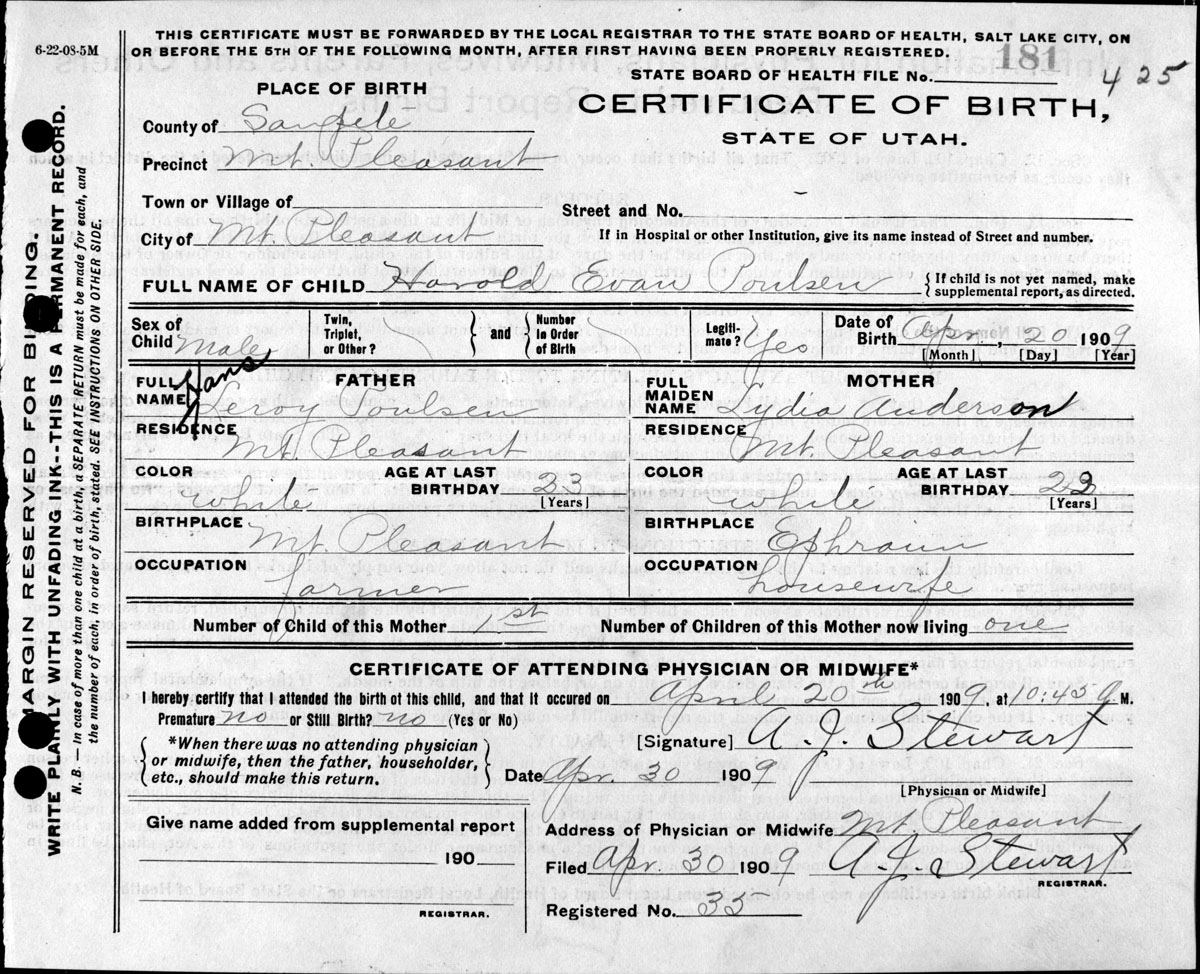 6-22-08-5M
THIS CERTIFICATE MUST BE FORWARDED BY THE LOCAL REGISTRAR TO THE STATE BOARD OF HEALTH, SALT LAKE CITY, ON
OR BEFORE THE 5TH OF THE FOLLOWING MONTH, AFTER FIRST HAVING BEEN PROPERLY REGISTERED.
181
STATE BOARD OF HEALTH FILE No. 425
PLACE OF BIRTH
CERTIFICATE OF BIRTH,
STATE OF UTAH.
County of Sanpete
Precinct Mt. Pleasant
Town or Village of
Street and No. –
City of Mt. Pleasant
If in Hospital or other Institution, give its name instead of Street and number.
FULL NAME OF CHILD Harold Evan Poulsen { If child is not yet named, make
supplemental report, as directed.
Sex of Child Male
Twin, Triplet, or Other?
and
Number in Order of Birth
Legiti-mate? Yes
Date of Birth Apr, 20 1909
[Month] [Day] [Year]
FATHER
FULL NAME Hans Leroy Poulsen
RESIDENCE Mt. Pleasant
COLOR White
AGE AT LAST BIRTHDAY 23 [Years]
BIRTHPLACE Mt. Pleasant
OCCUPATION farmer
MOTHER
FULL MAIDEN NAME Lydia Anderson
RESIDENCE Mt. Pleasant
COLOR White
AGE AT LAST BIRTHDAY 22 [Years]
BIRTHPLACE Ephraim
OCCUPATION housewife
Number of Child of this Mother 1st Number of Children of this Mother now living one
CERTIFICATE OF ATTENDING PHYSICIAN OR MIDWIFE*
I hereby certify that I attended the birth of this child, and that it occured on April 20th 1909, at 10:45 a M.
Premature no or Still Birth? no (Yes or No)
*When there was no attending physician
or midwife, then the father, householder,
etc., should make this return.
[Signature] A. J. Stewart
Date Apr. 30 1909
[Physician or Midwife]
Give name added from supplemental report
190
REGISTRAR.
Address of Physician or Midwife Mt. Pleasant
Filed Apr. 30 1909 A. J. Stewart
REGISTRAR.
Registered No. 35
MARGIN RESERVED FOR BINDING.
WRITE PLAINLY WITH UNFADING INK--THIS IS A PERMANENT RECORD.
N. B.—In case of more than one child at a birth, a SEPARATE RETURN must be made for each, and
the number of each, in order of birth, stated. SEE INSTRUCTIONS ON OTHER SIDE.